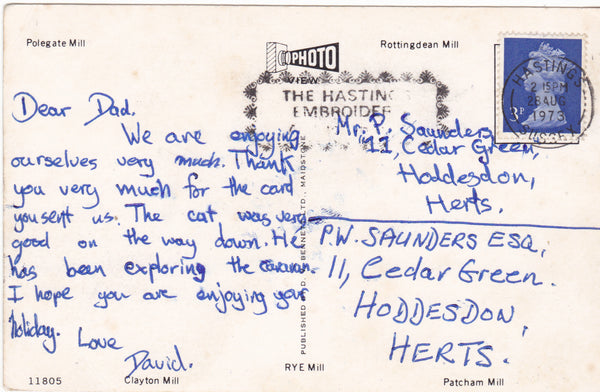 Polegate Mill
Rottingdean Mill
PHOTO
VIEW
THE HASTINGS
EMBROIDER
HASTINGS
2 15PM
28 AUG
1973
SUSSEX
3P
Dear Dad.
We are enjoying
ourselves very much. Thank
you very much for the card
you sent us. The cat was very
good on the way down. He
has been exploring the caravan.
I hope you are enjoying your
holiday.
Love
David.
PUBLISHED BY D. BENNETT LTD., MAIDSTONE
Mr. P. Saunders,
11, Cedar Green,
Hoddesdon,
Herts.
P.W. SAUNDERS ESQ,
11, Cedar Green.
HODDESDON,
HERTS.
11805
Clayton Mill
RYE Mill
Patcham Mill